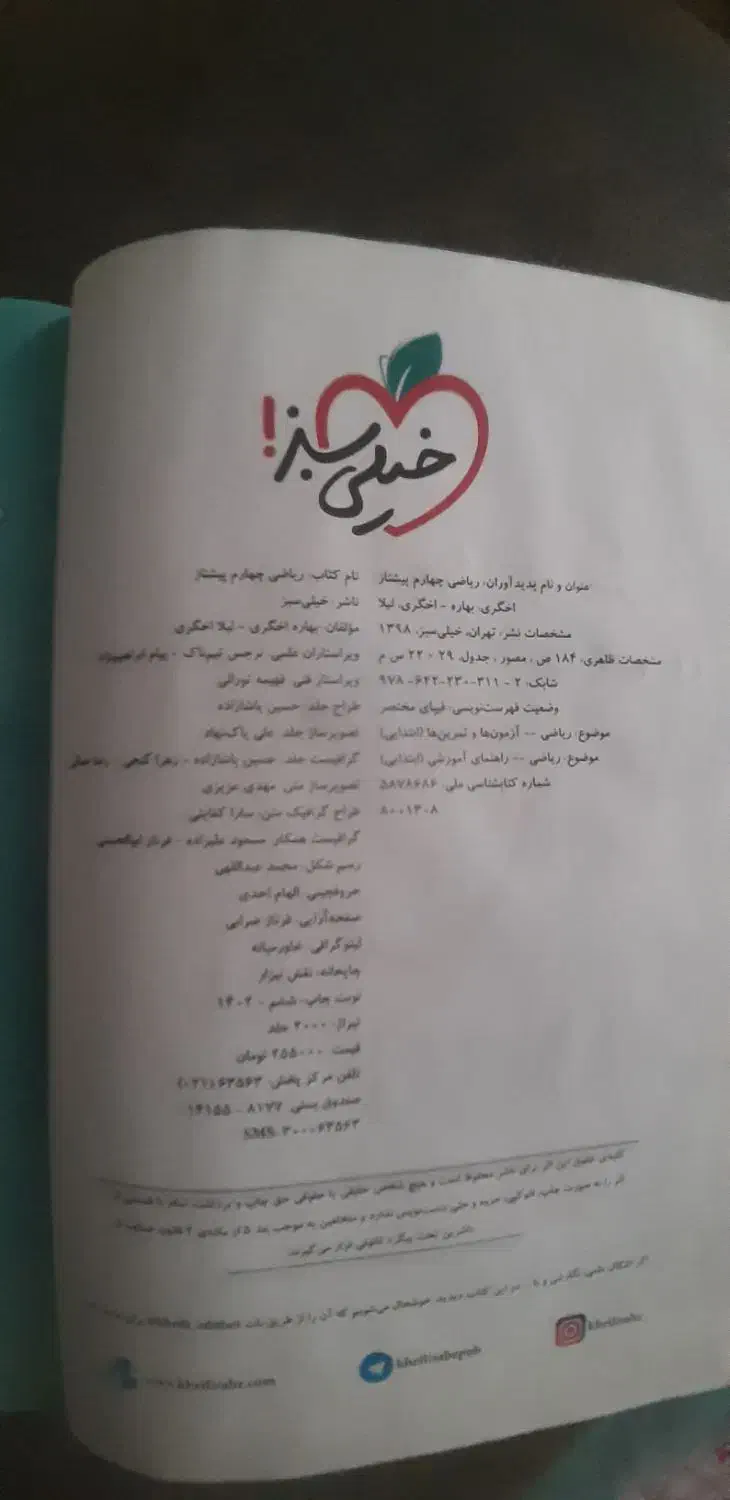 خیلی سبز!
عنوان و نام پدیدآوران: ریاضی چهارم پیشتاز
اخگری، بهاره - اخگری، لیلا
مشخصات نشر: تهران، خیلی‌سبز، ۱۳۹۸
مشخصات ظاهری: ۱۸۴ ص ، مصور ، جدول، ۲۹ × ۲۲ س م
شابک: ۲ - ۳۱۱-۲۳۰-۶۲۲- ۹۷۸
وضعیت فهرست‌نویسی: فیپای مختصر
موضوع: ریاضی -- آزمون‌ها و تمرین‌ها (ابتدایی)
موضوع: ریاضی -- راهنمای آموزشی (ابتدایی)
شماره کتابشناسی ملی: ۵۸۷۸۶۸۶
۸۰۰۱۳۰۸
نام کتاب: ریاضی چهارم پیشتاز
ناشر: خیلی‌سبز
مؤلفان: بهاره اخگری - لیلا اخگری
ویراستاران علمی: نرجس تیم‌ناک - پیام
ویراستار فنی: فهیمه نورائی
طراح جلد: حسین پاشازاده
تصویرساز جلد: علی پاک‌نهاد
گرافیست جلد: حسین پاشازاده - زهرا گنجی
تصویرساز متن: مهدی عزیزی
طراح گرافیک متن: سارا کفایتی
گرافیست همکار: مسعود علیزاده - فرناز
رسم شکل: محمد عبداللهی
حروفچینی: الهام احدی
صفحه‌آرایی: فرناز ضرابی
لیتوگرافی: خاورمیانه
چاپخانه: نقش نیزار
نوبت چاپ: ششم - ۱۴۰۲
تیراژ: ۲۰۰۰ جلد
قیمت: ۲۵۵۰۰۰ تومان
تلفن مرکز پخش: ۶۳۵۶۳(۰۲۱)
صندوق پستی: ۸۱۷۷ - ۱۴۱۵۵
SMS: ۳۰۰۰۶۳۵۶۳
کلیه‌ی حقوق این اثر برای ناشر محفوظ است و هیچ شخص حقیقی یا حقوقی حق چاپ و برداشت تمام یا قسمتی از
اثر را به صورت چاپ، فتوکپی، جزوه و حتی دست‌نویس ندارد و متخلفین به موجب بند ۵ از ماده‌ی ۲ قانون حمایت از
ناشرین تحت پیگرد قانونی قرار می‌گیرند.
در این کتاب دیدید، خوشحال می‌شویم که آن را از طریق
www.kheilisabz.com
kheilisabzpub
kheilisabz